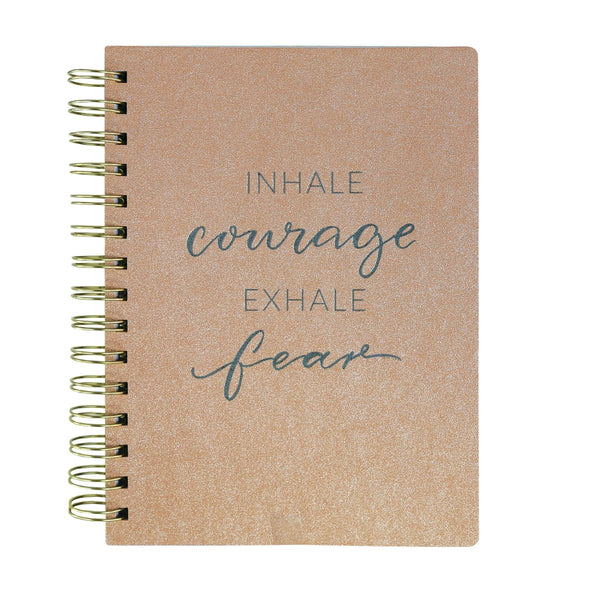 INHALE
courage
EXHALE
fear